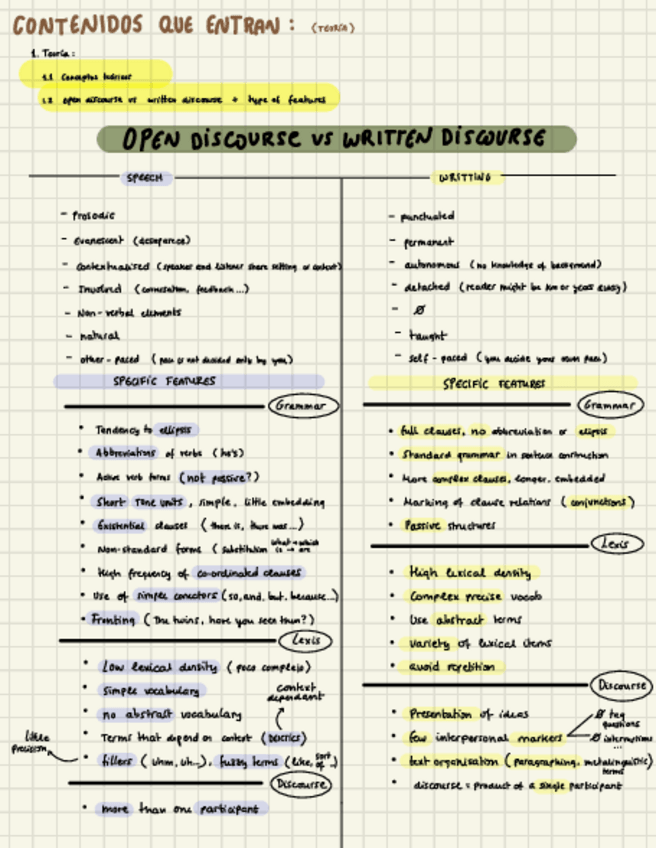 CONTENIDOS QUE ENTRAN : (TEORÍA)
1. Teoría :
1.1 Conceptos teóricos
1.2 open discourse vs written discourse + type of features
OPEN DISCOURSE VS WRITTEN DISCOURSE
SPEECH
- Prosodic
- Evanescent (desaparece)
- Contextualised (speaker and listener share setting or context)
- Involved (conversation, feedback...)
- Non-verbal elements
- natural
- other-paced (pace is not decided only by you)
SPECIFIC FEATURES
Grammar
• Tendency to ellipsis
• Abbreviations of verbs (he's)
• Active verb forms (not passive?)
• Short tone units, simple, little embedding
• Existential clauses (there is, there was...)
• Non-standard forms (substitution what → which
is → are
• High frequency of co-ordinated clauses
• Use of simple conectors (so, and, but, because...)
• Fronting (The twins, have you seen them?)
Lexis
• Low lexical density (poco complejo)
• simple vocabulary
• no abstract vocabulary
• Terms that depend on context (DEICTICS)
context dependant
• fillers (uhm, uh...), fuzzy terms (like, sort of...)
little precision
Discourse
• more than one participant
WRITTING
- punctuated
- permanent
- autonomous (no knowledge of background)
- detached (reader might be km or years away)
- Ø
- taught
- self-paced (you decide your own pace)
SPECIFIC FEATURES
Grammar
• full clauses, no abbreviation or ellipsis
• Standard grammar in sentence construction
• More complex clauses, longer, embedded
• Marking of clause relations (conjunctions)
• Passive structures
Lexis
• High lexical density
• Complex precise vocab
• Use abstract terms
• Variety of lexical items
• avoid repetition
Discourse
• Presentation of ideas
• few interpersonal markers
Ø tag questions
Ø interruptions
...
• text organisation (paragraphing, metalinguistic terms)
• discourse = product of a single participant